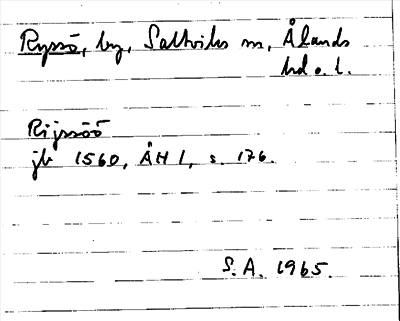 Ryssö, by, Saltviks sn, Ålands
hd o. l.
Rijssöö
jb 1560, ÅH 1, s. 176.
S.A. 1965.